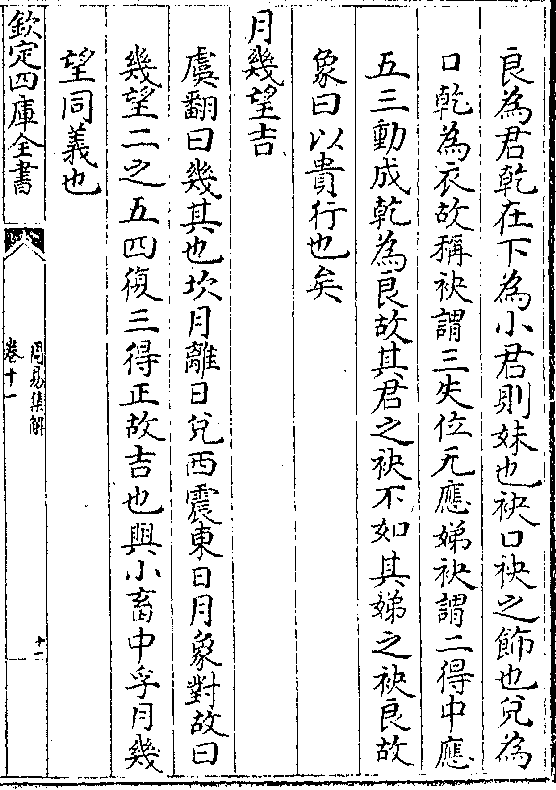 良為君乾在下為小君則妹也袂口袂之飾也兌為
口乾為衣故稱袂謂三失位无應娣袂謂二得中應
五三動成乾為良故其君之袂不如其娣之袂良故
象曰以貴行也矣
月幾望吉
虞翻曰幾其也坎月離日兌西震東日月象對故曰
幾望二之五四復三得正故吉也與小畜中孚月幾
望同義也
欽定四庫全書
周易集解
卷十一
十一